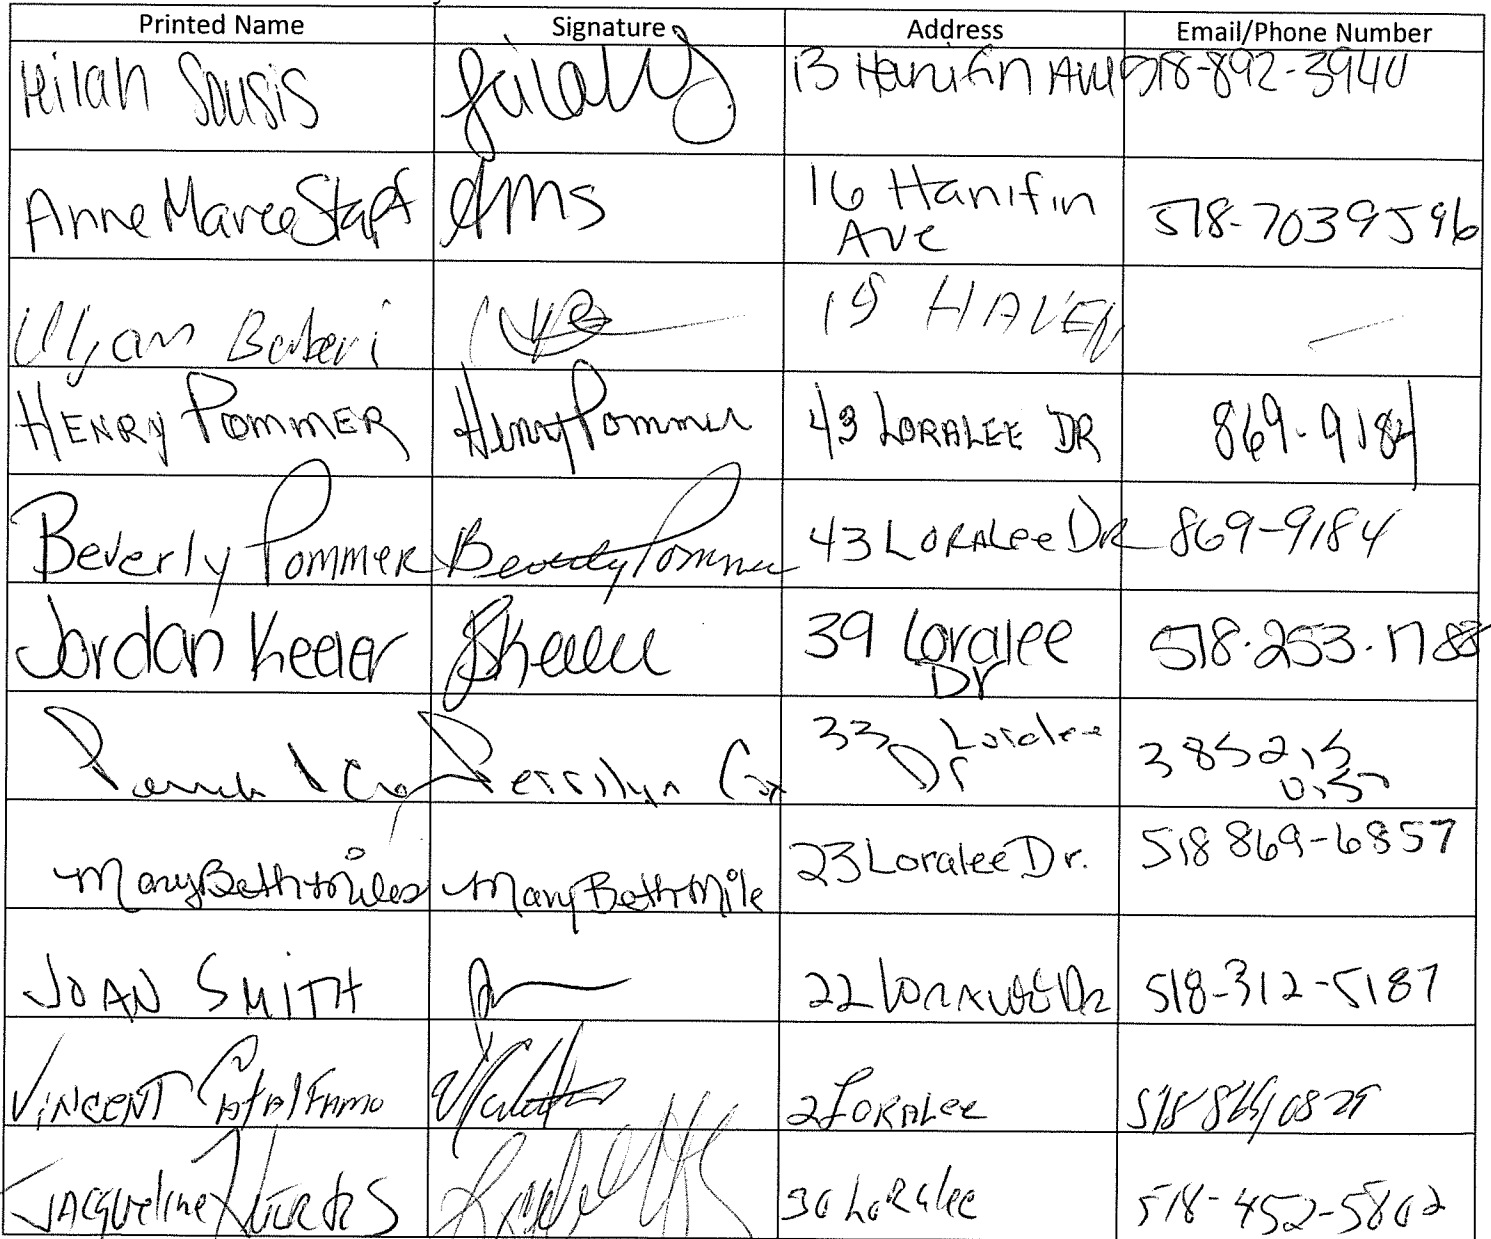 Printed Name Signature Address Email/Phone Number
Leilah Sousis 13 Hanifin Ave 518-892-3940
Anne Maree Stapf AMS 16 Hanifin
Ave 518-7039596
15 HAVEN
HENRY POMMER Henry Pommer 43 LORALEE DR 869-9184
Beverly Pommer Beverly Pommer 43 LORALEE DR 869-9184
Jordan Keeler JKeeler 39 Loralee
Dr 518-253-1788
Perrilyn 33 Loralee
Dr
Mary Beth Miles Mary Beth Mile 23 Loralee Dr. 518 869-6857
JOAN SMITH 22 Loralee Dr 518-312-5187
VINCENT CatalFamo 2 LORALEE
JACqueline 30 LoRalee 518-452-5802